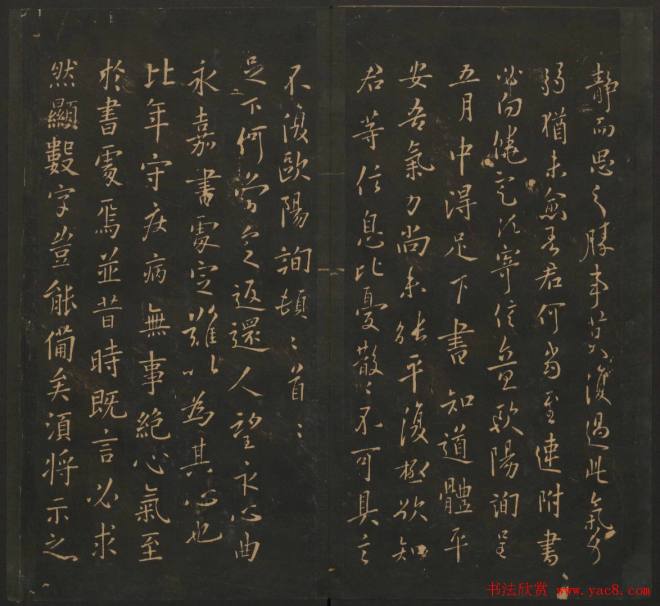 静而思之胜事莫復過此氣力
弱猶未愈吾君何當至速附書
必向饒定次寧信送歐陽詢呈
五月中得足下書知道體平
安吾氣力尚未能平復極欲知
君等信息比憂散々不可具言
不復歐陽詢頓々首々
足下何當之返還人望永心曲
永嘉書處定難以為其心也
比年守疾病無事絶心氣至
於書處焉並昔時既言必求
然顯數字豈能備矣須將示之
书法欣赏 www.yac8.com